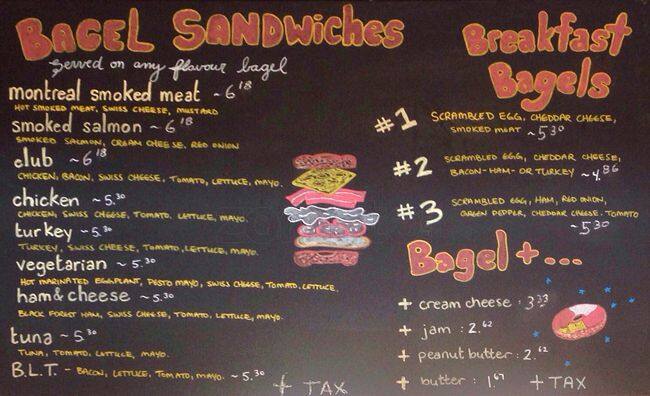 BAGEL SANDWiches
Served on any flavour bagel
montreal smoked meat ~ 6 18
HOT SMOKED MEAT, SWISS CHEESE, MUSTARD
smoked salmon ~ 6 18
SMOKED SALMON, CREAM CHEESE, RED ONION
club ~ 6 18
CHICKEN, BACON, SWISS CHEESE, TOMATO, LETTUCE, MAYO.
chicken ~ 5.30
CHICKEN, SWISS CHEESE, TOMATO, LETTUCE, MAYO.
turkey ~ 5.30
TURKEY, SWISS CHEESE, TOMATO, LETTUCE, MAYO.
vegetarian ~ 5.30
HOT MARINATED EGGPLANT, PESTO MAYO, SWISS CHEESE, TOMATO, LETTUCE.
ham & cheese ~ 5.30
BLACK FOREST HAM, SWISS CHEESE, TOMATO, LETTUCE, MAYO.
tuna ~ 5 30
TUNA, TOMATO, LETTUCE, MAYO.
B.L.T. - BACON, LETTUCE, TOMATO, MAYO. ~ 5.30
+ TAX
Breakfast
Bagels
#1 SCRAMBLED EGG, CHEDDAR CHEESE,
SMOKED MEAT ~ 5 30
#2 SCRAMBLED EGG, CHEDDAR CHEESE,
BACON - HAM - OR TURKEY ~ 4.86
#3 SCRAMBLED EGG, HAM, RED ONION,
GREEN PEPPER, CHEDDAR CHEESE. TOMATO
~ 5 30
Bagel + ...
+ cream cheese : 3 33
+ jam : 2.62
+ peanut butter : 2.62
+ butter : 1.67 + TAX